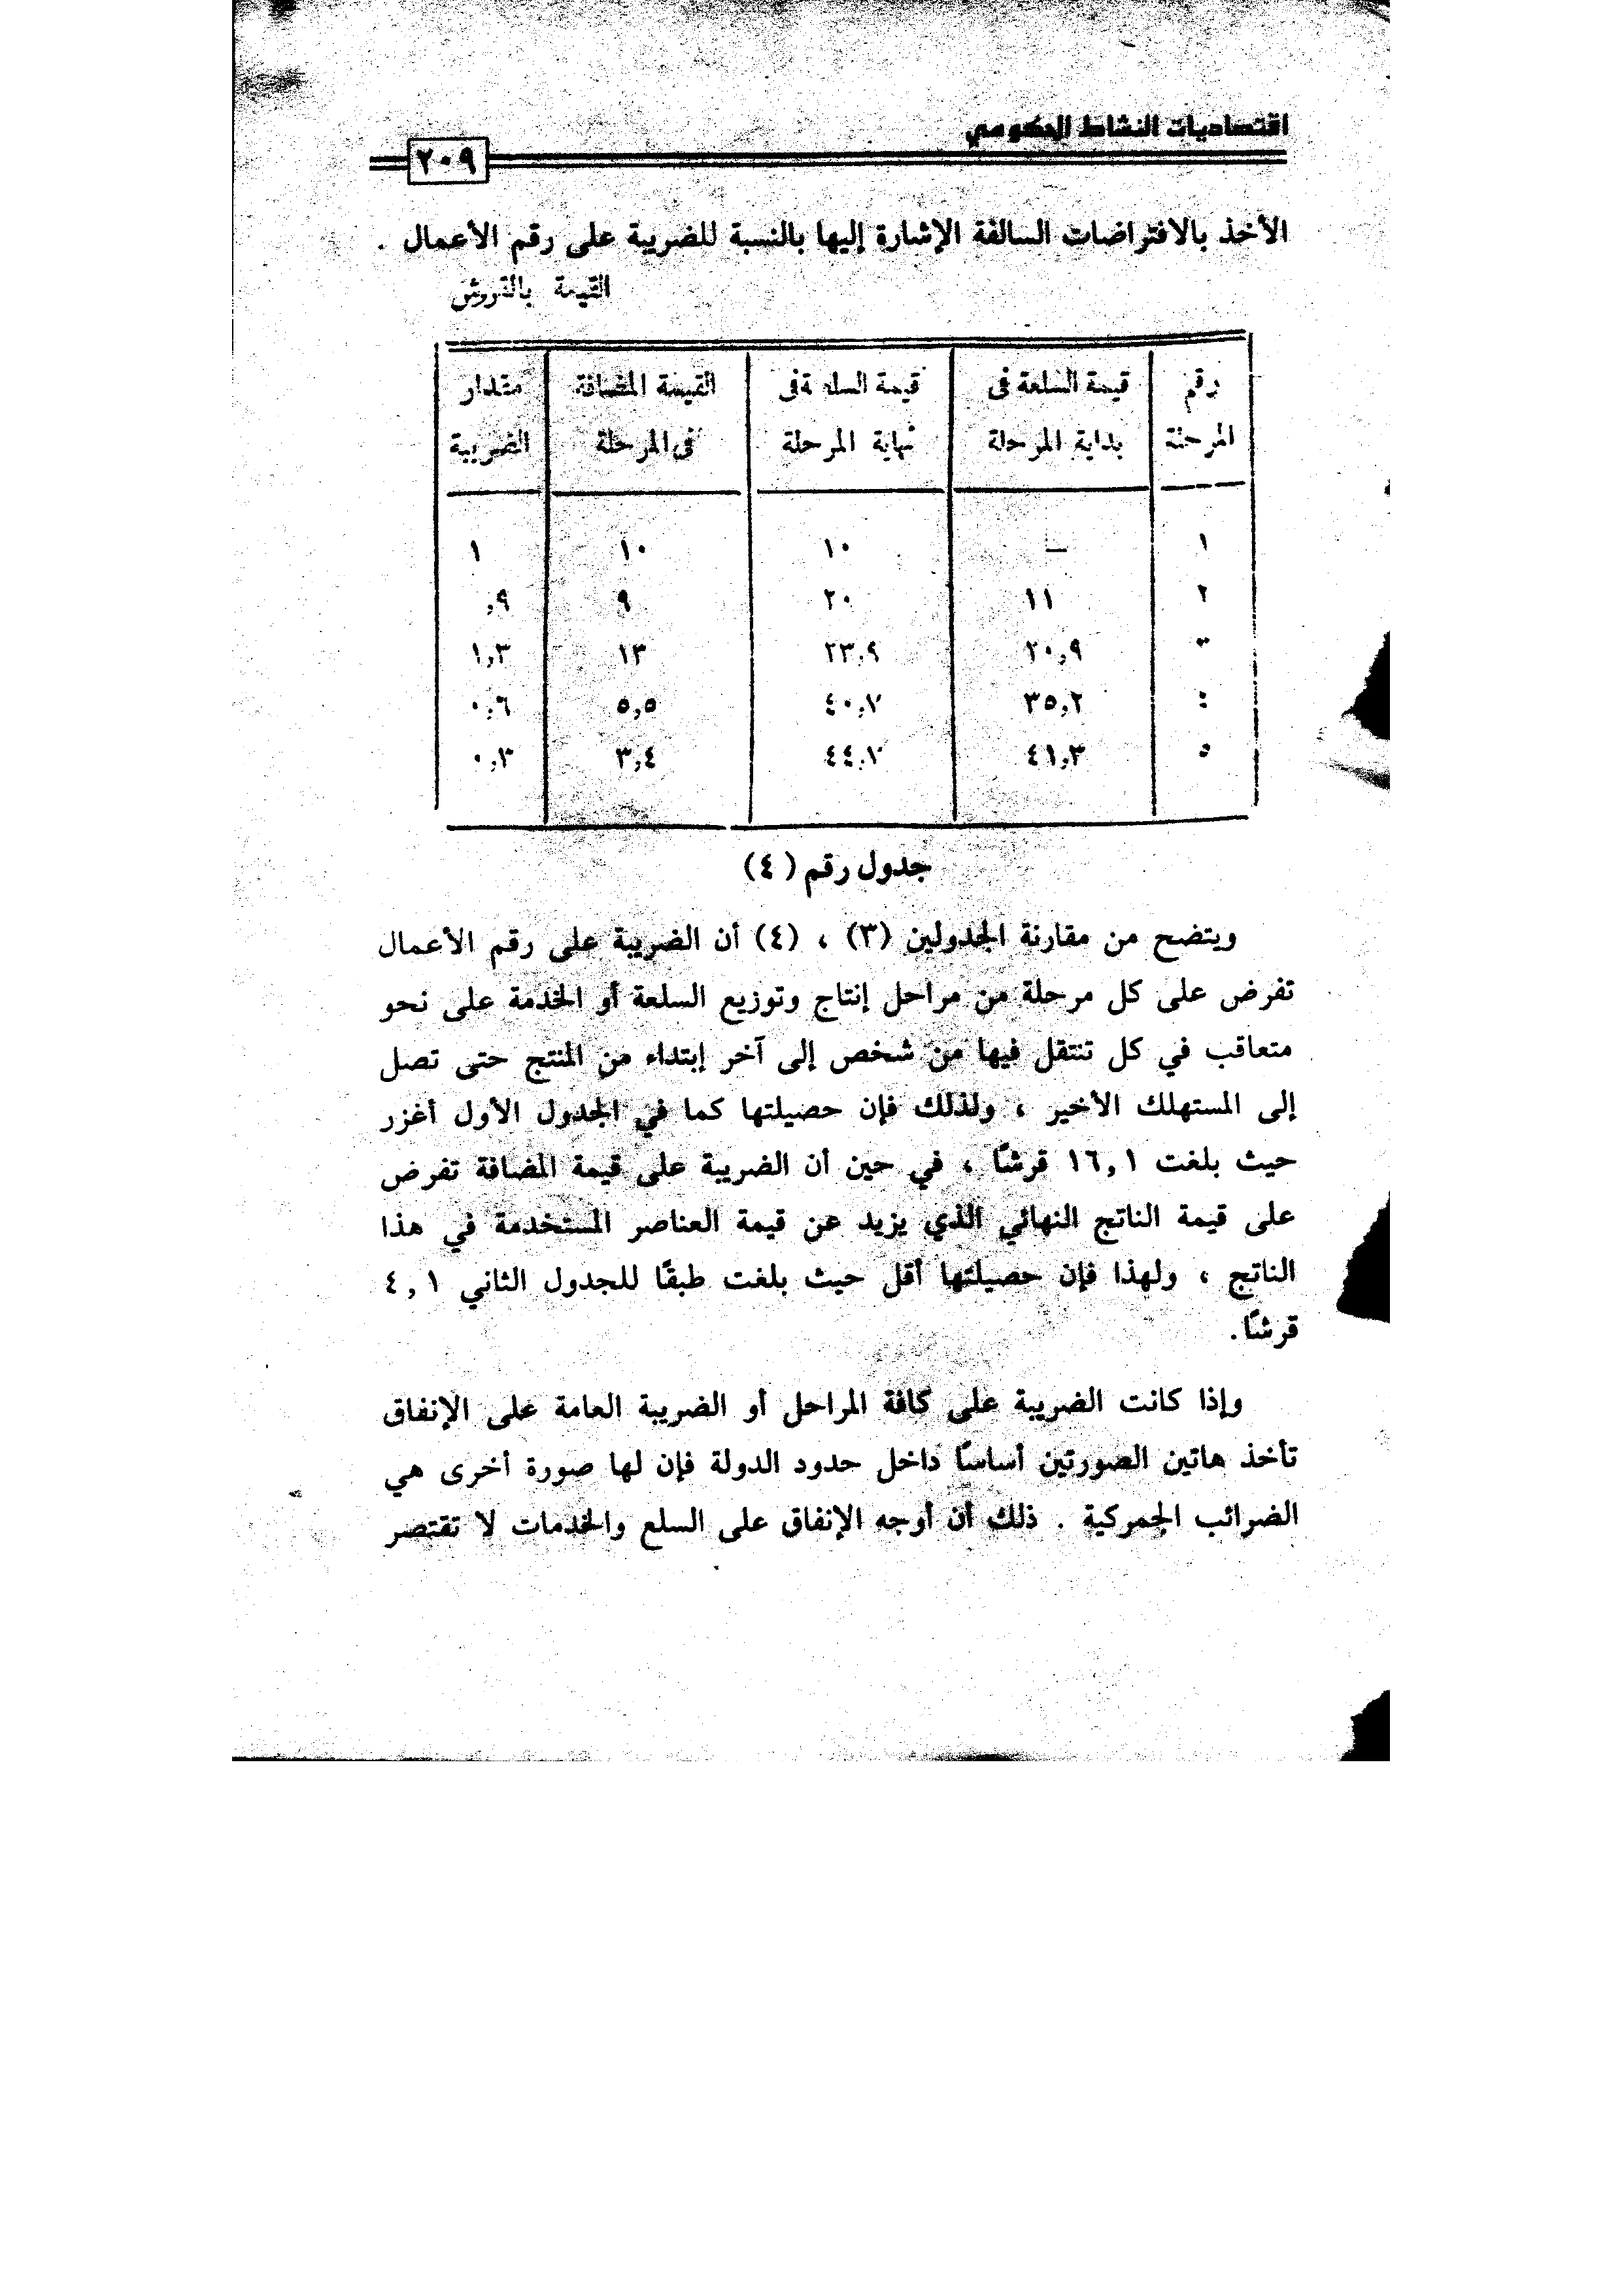 اقتصاديات النشاط الحكومي
٢٠٩
الأخذ بالافتراضات السالفة الإشارة إليها بالنسبة للضريبة على رقم الأعمال .
القيمة بالقورش
رقم المرحلة | قيمة السلعة فى بداية المرحلة | قيمة السلعة فى نهاية المرحلة | القيمة المضافة فى المرحلة | مقدار الضريبة
١ | — | ١٠ | ١٠ | ١
٢ | ١١ | ٢٠ | ٩ | ,٩
٣ | ٢٠,٩ | ٢٣,٩ | ١٣ | ١,٣
٤ | ٣٥,٢ | ٤٠,٧ | ٥,٥ | ٠,٦
٥ | ٤١,٣ | ٤٤,٧ | ٣,٤ | ٠,٣
جدول رقم (٤)
ويتضح من مقارنة الجدولين (٣) ، (٤) أن الضريبة على رقم الأعمال
تفرض على كل مرحلة من مراحل إنتاج وتوزيع السلعة أو الخدمة على نحو
متعاقب في كل تنتقل فيها من شخص إلى آخر إبتداء من المنتج حتى تصل
إلى المستهلك الأخير ، ولذلك فإن حصيلتها كما في الجدول الأول أغزر
حيث بلغت ١٦,١ قرشًا ، في حين أن الضريبة على قيمة المضافة تفرض
على قيمة الناتج النهائي الذي يزيد عن قيمة العناصر المستخدمة في هذا
الناتج ، ولهذا فإن حصيلتها أقل حيث بلغت طبقًا للجدول الثاني ٤,١
قرشًا.
وإذا كانت الضريبة على كافة المراحل أو الضريبة العامة على الإنفاق
تأخذ هاتين الصورتين أساسًا داخل حدود الدولة فإن لها صورة أخرى هي
الضرائب الجمركية . ذلك أن أوجه الإنفاق على السلع والخدمات لا تقتصر